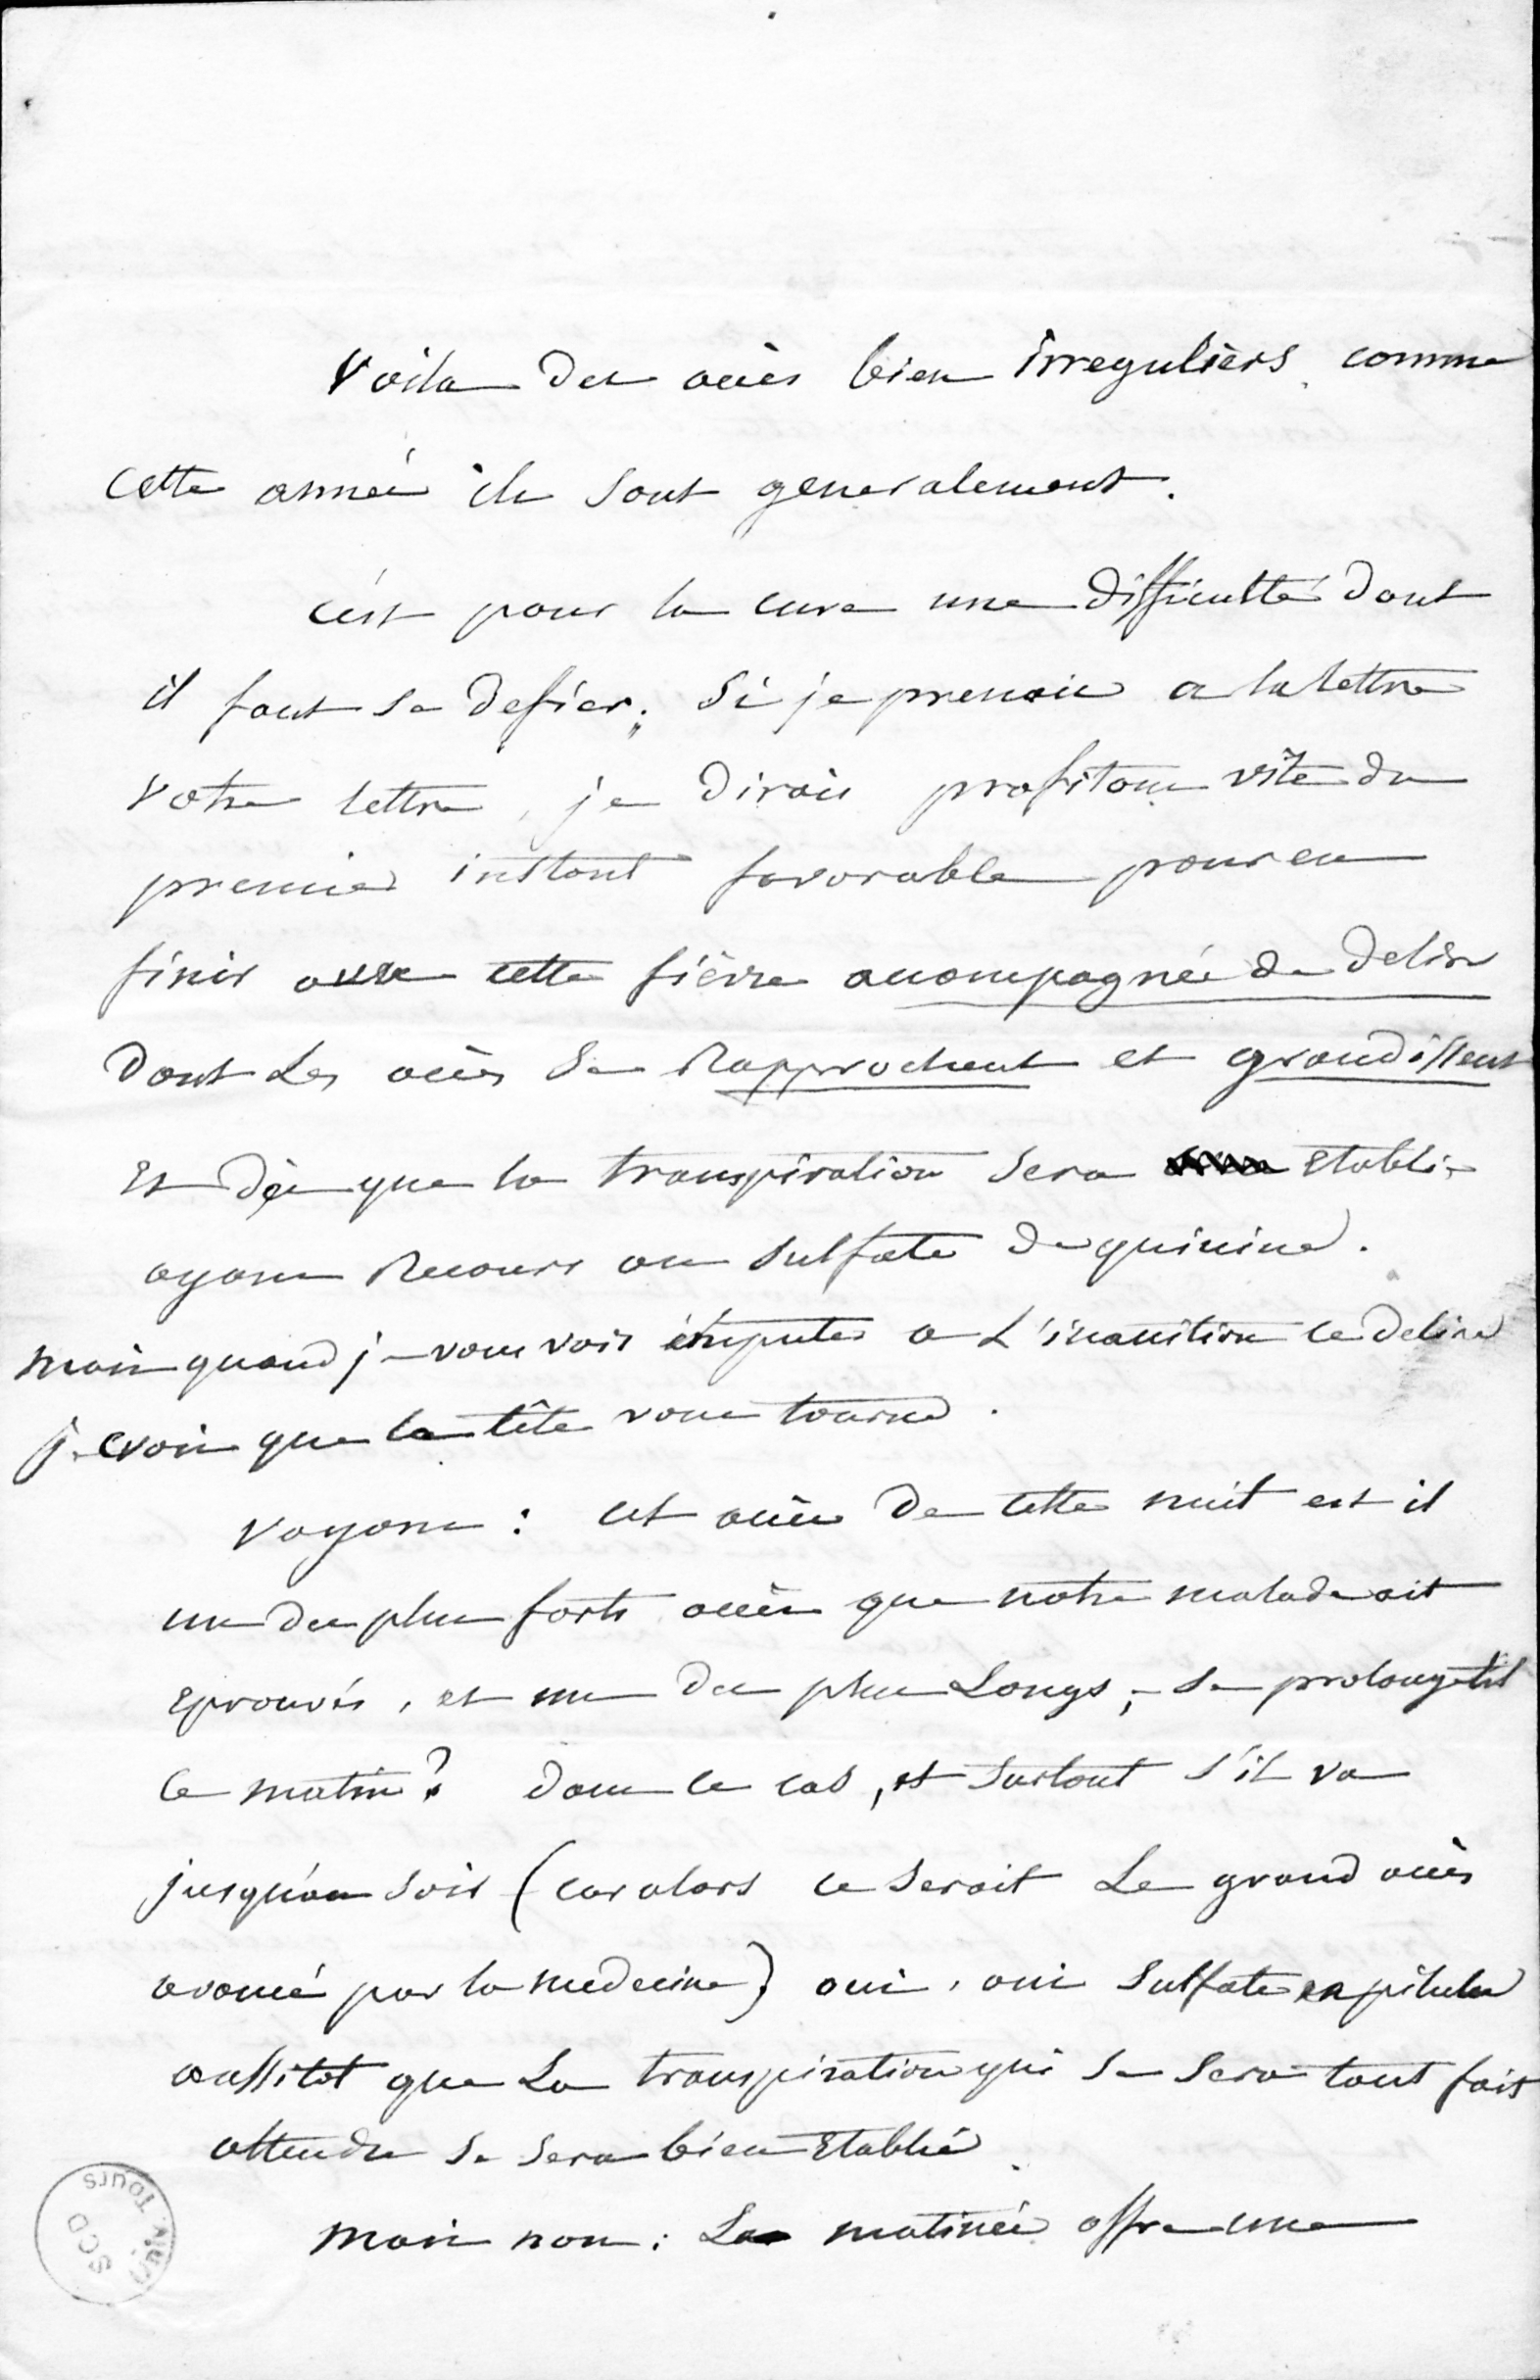 Voila des accès bien irreguliers, comme
cette année ils sont generalement.
c'est pour la cure une difficulté dont
il faut se defier; Si je prenais a la lettre
votre lettre, je dirais profitons vîte du
premier instant favorable pour en
finir avec cette fièvre accompagnée de delire
dont Les accès se Rapprochent et grandissent
Et dès que la transpiration sera Etablie
ayons Recours au sulfate de quinine.
mais quand je vous vois imputer a L'inanition ce delire
je crois que la tête vous tourne.
voyons : cet accès de cette nuit est il
un des plus forts accès que notre malade ait
eprouvés, et un des plus Longs, - se prolonge til
ce matin? dans ce cas, et surtout s'il va
jusqu'au soir (car alors ce serait Le grand accès
avoué par la medecine) oui, oui sulfate en pilules
aussitot que La transpiration qui se sera tant fait
attendre se sera bien Etablie.
mais non : La matinée offre une
Univ. Tours
SCD